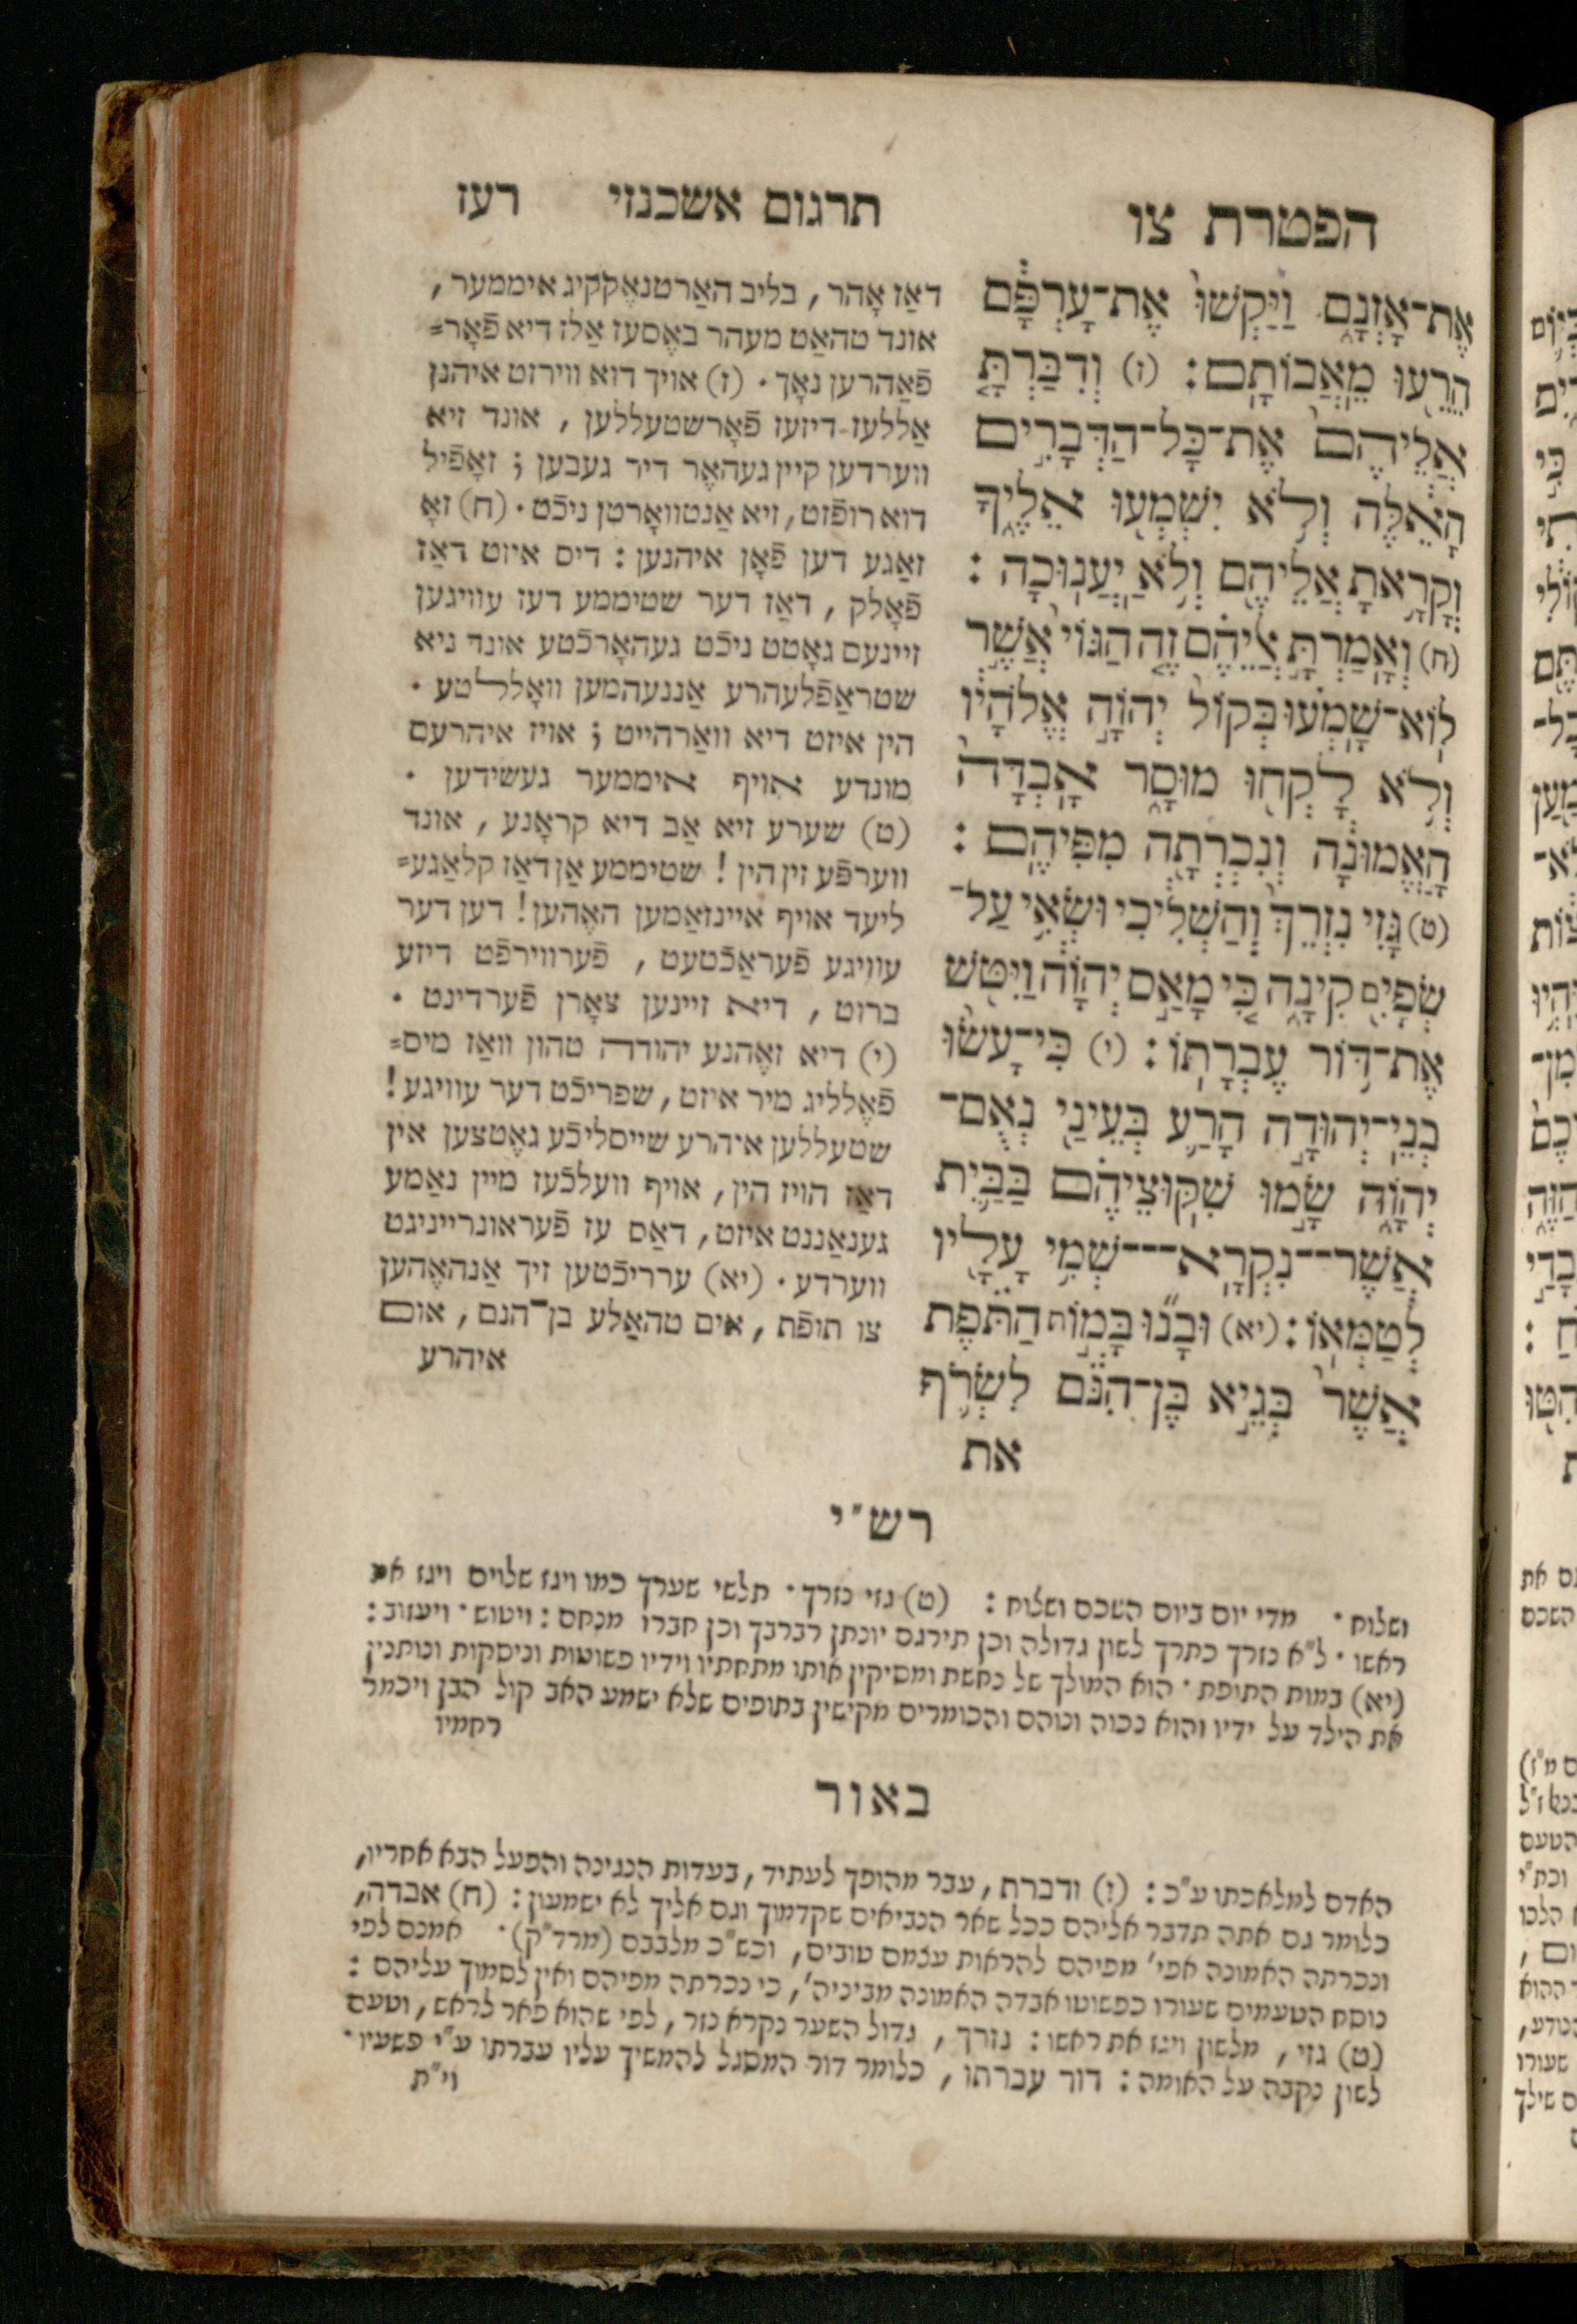 הפטרת צו
תרגום אשכנזי
רעז
אֶת־אָזְנָם וַיַּקְשׁוּ אֶת־עָרְפָּם
הֵרֵעוּ מֵאֲבוֹתָם : (ז) וְדִבַּרְתָּ
אֲלֵיהֶם אֶת־כָּל־הַדְּבָרִים
הָאֵלֶּה וְלֹא יִשְׁמְעוּ אֵלֶיךָ
וְקָרָאתָ אֲלֵיהֶם וְלֹא יַעֲנוּכָה :
(ח) וְאָמַרְתָּ אֲלֵיהֶם זֶה הַגּוֹי אֲשֶׁר
לוֹא־שָׁמְעוּ בְּקוֹל יְהוָֹה אֱלֹהָיו
וְלֹא לָקְחוּ מוּסָר אָבְדָה
הָאֱמוּנָה וְנִכְרְתָה מִפִּיהֶם :
(ט) גָּזִּי נִזְרֵךְ וְהַשְׁלִיכִי וּשְׂאִי עַל־
שְׂפָיִם קִינָה כִּי מָאַס יְהוָֹה וַיִּטֹּשׁ
אֶת־דּוֹר עֶבְרָתוֹ : (י) כִּי־עָשׂוּ
בְנֵי־יְהוּדָה הָרַע בְּעֵינַי נְאֻם־
יְהוָֹה שָׂמוּ שִׁקּוּצֵיהֶם בַּבַּיִת
אֲשֶׁר־נִקְרָא־שְׁמִי עָלָיו
לְטַמְּאוֹ : (יא) וּבָנוּ בָּמוֹת הַתֹּפֶת
אֲשֶׁר בְּגֵיא בֶן־הִנֹּם לִשְׂרֹף
את
דאַז אָהר , בליב האַרטנאֶקקיג איממער ,
אונד טהאַט מעהר באֶסעז אַלז דיא פֿאָר=
פֿאַהרען נאָך . (ז) אויך דוא ווירזט איהנן
אַללעז דיזעז פֿאָרשטעללען , אונד זיא
ווערדען קיין געהאֶר דיר געבען ; זאָפֿיל
דוא רופֿזט , זיא אַנטוואָרטן ניכֿט . (ח) זאָ
זאַגע דען פֿאָן איהנען : דיס איזט דאַז
פֿאָלק , דאַז דער שטיממע דעז עוויגען
זיינעם גאָטט ניכֿט געהאָרכֿטע אונד ניא
שטראַפֿלעהרע אַננעהמען וואָללטע .
הין איזט דיא וואַרהייט ; אויז איהרעם
מונדע אויף איממער געשידען .
(ט) שערע זיא אַב דיא קראָנע , אונד
ווערפֿע זין הין ! שטיממע אַן דאַז קלאַגע=
ליעד אויף איינזאַמען האֶהען ! דען דער
עוויגע פֿעראַכֿטעט , פֿערווירפֿט דיזע
ברוט , דיא זיינען צאָרן פֿערדינט .
(י) דיא זאֶהנע יהודה טהון וואַז מיס=
פֿאֶלליג מיר איזט , שפריכֿט דער עוויגע !
שטעללען איהרע שייסליכֿע גאֶטצען אין
דאַז הויז הין , אויף וועלכֿעז מיין נאַמע
גענאַננט איזט , דאַס עז פֿעראונרייניגט
ווערדע . (יא) ערריכֿטען זיך אַנהאֶהען
צו תופֿת , אים טהאַלע בן־הנם , אום
איהרע
רש״י
ושלוח . מדי יום ביום השכם ושלוח : (ט) גזי נזרך . תלשי שערך כמו ויגז שלוים ויגז את
ראשו . ל״א נזרך כתרך לשון גדולה וכן תירגם יונתן רברבך וכן חברו מנחם : ויטוש . ויעזוב :
(יא) במות התופת . הוא המולך של נחשת ומסיקין אותו מתחתיו וידיו פשוטות וניסקות ונותנין
את הילד על ידיו והוא נכוה ונוהם והכומרים מקישין בתופים שלא ישמע האב קול הבן ויכמר
רחמיו
באור
האדם למלאכתו ע״כ : (ז) ודברת , עבר מהופך לעתיד , בעדות הנגינה והפעל הבא אחריו ,
כלומר גם אתה תדבר אליהם ככל שאר הנביאים שקדמוך וגם אליך לא ישמעון : (ח) אבדה ,
ונכרתה האמונה אפי׳ מפיהם להראות עצמם טובים , וכש״כ מלבבם (מרד״ק) . אמנם לפי
נוסח הטעמים שעורו כפשוטו אבדה האמונה מביניה׳ , כי נכרתה מפיהם ואין לסמוך עליהם :
(ט) גזי , מלשון ויגז את ראשו : נזרך , גדול השער נקרא נזר , לפי שהוא פאר לראש , וטעם
לשון נקבה על האומה : דור עברתו , כלומר דור המסגל להמשיך עליו עברתו ע״י פשעיו .
וי״ת